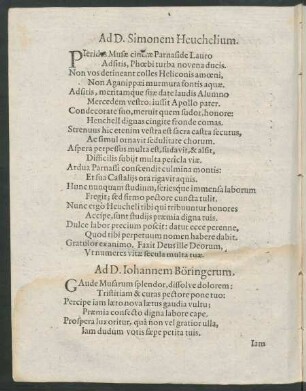 Ad D. Simonem Heuchelium.
Pieridum Musæ cinctæ Parnaside Lauro
Adsitis, Phœbi turba novena ducis.
Non vos detineant colles Heliconis amœni,
Non Aganippæi murmura fontis aquæ.
Adsitis, meritamque suæ date laudis Alumno
Mercedem vestro: jussit Apollo pater.
Condecorate suo, meruit quem sudor, honore:
HenchelI dignas cingite fronde comas.
Strenuus hic etenim vestra est sacra castra secutus,
Ac simul ornavit sedulitate chorum.
Aspera perpessus multa est, sudavit, & alsit,
Difficilis subijt multa pericla viæ.
Ardua Parnassi conscendit culmina montis:
Et sua Castalijs ora rigavit aquis.
Hunc nunquam studium, seriesque immensa laborum
Fregit; sed firmo pectore cuncta tulit.
Nunc ergò Heucheli tibi qui tribuuntur honores
Accipe, sunt studijs præmia digna tuis.
Dulce labor precium poscit: datur ecce perenne,
Quod tibi perpetuum nomen habere dabit.
Gratulor ex animo. Faxit Deus ille Deorum,
Vt numeres vitæ secula multa tuæ.
Ad D. Iohannem Böringerum.
GAude Musarum splendor, dissolve dolorem:
Tristitiam & curas pectore pone tuo:
Percipe iam læto nova lætus gaudia vultu:
Præmia confecto digna labore cape.
Prospera lux oritur, quâ non vel gratior ulla,
Iam dudum votis sæpe petita tuis.
Iam